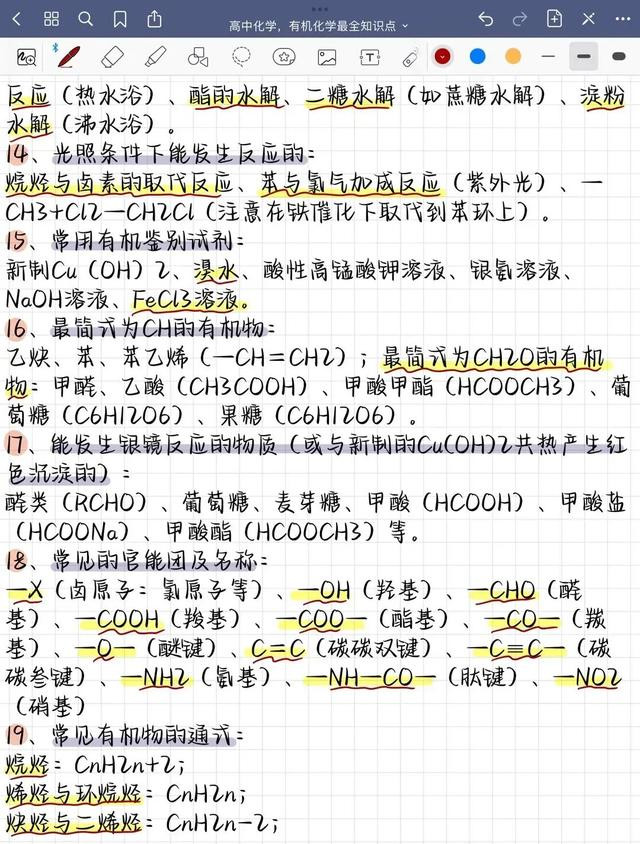 高中化学,有机化学最全知识点
反应（热水浴）、酯的水解、二糖水解（如蔗糖水解）、淀粉
水解（沸水浴）。
14、光照条件下能发生反应的：
烷烃与卤素的取代反应、苯与氯气加成反应（紫外光）、—
CH3+Cl2—CH2Cl（注意在铁催化下取代到苯环上）。
15、常用有机鉴别试剂：
新制Cu（OH）2、溴水、酸性高锰酸钾溶液、银氨溶液、
NaOH溶液、FeCl3溶液。
16、最简式为CH的有机物：
乙炔、苯、苯乙烯（—CH=CH2）；最简式为CH2O的有机
物：甲醛、乙酸（CH3COOH）、甲酸甲酯（HCOOCH3）、葡
萄糖（C6H12O6）、果糖（C6H12O6）。
17、能发生银镜反应的物质（或与新制的Cu(OH)2共热产生红
色沉淀的）：
醛类（RCHO）、葡萄糖、麦芽糖、甲酸（HCOOH）、甲酸盐
（HCOONa）、甲酸酯（HCOOCH3）等。
18、常见的官能团及名称：
—X（卤原子：氯原子等）、—OH（羟基）、—CHO（醛
基）、—COOH（羧基）、—COO—（酯基）、—CO—（羰
基）、—O—（醚键）、C=C（碳碳双键）、—C≡C—（碳
碳叁键）、—NH2（氨基）、—NH—CO—（肽键）、—NO2
（硝基）
19、常见有机物的通式：
烷烃：CnH2n+2；
烯烃与环烷烃：CnH2n；
炔烃与二烯烃：CnH2n-2；